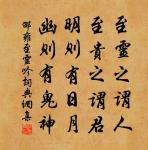 至靈之謂人
至貴之謂君
明則有日月
幽則有鬼神
邵雍至靈吟詞典網集